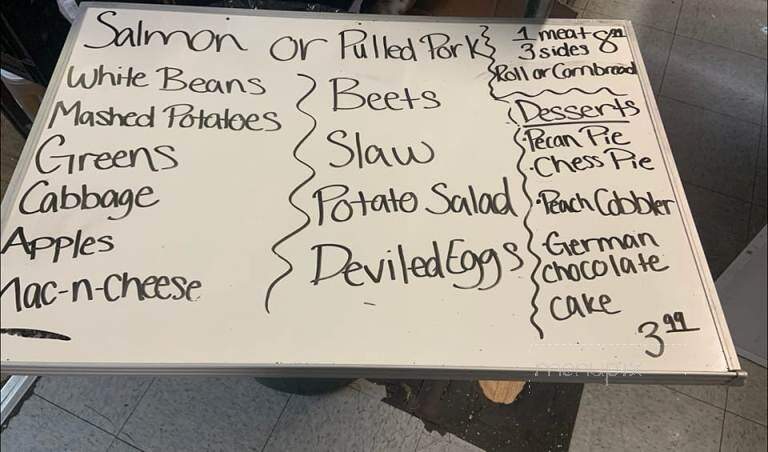 Salmon or Pulled Pork
1 meat
3 sides
Roll or Cornbread
White Beans
Mashed Potatoes
Greens
Cabbage
Apples
Mac-n-cheese
Beets
Slaw
Potato Salad
Deviled Eggs
Desserts
·Pecan Pie
·Chess Pie
·Peach Cobbler
·German
chocolate
cake
3.99
menupix